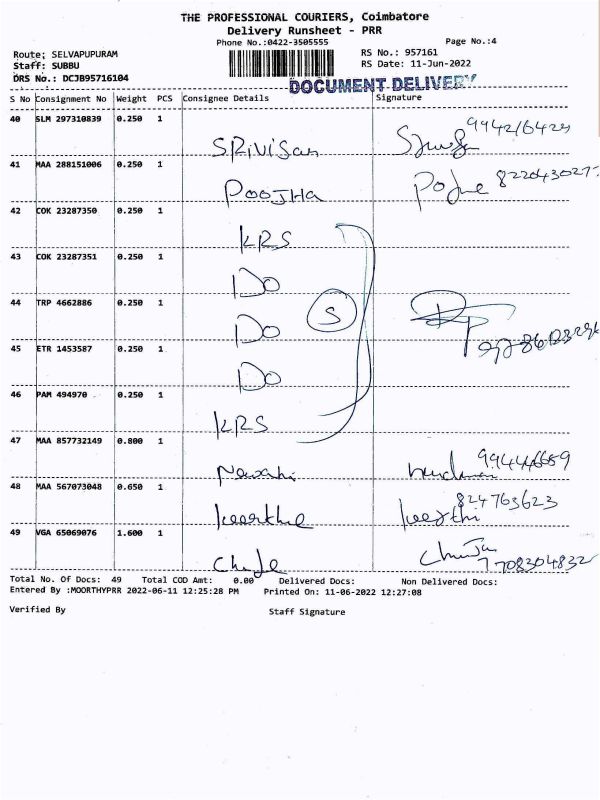 THE PROFESSIONAL COURIERS, Coimbatore
Delivery Runsheet - PRR
Phone No.:0422-3505555 Page No.:4
Route; SELVAPUPURAM RS No.: 957161
Staff: SUBBU RS Date: 11-Jun-2022
DRS No.: DCJB95716104
DOCUMENT DELIVERY
S No Consignment No Weight PCS Consignee Details Signature
40 SLM 297310839 0.250 1
SRIVISAN
41 MAA 288151006 0.250 1
POOJHA
42 COK 23287350 0.250 1
KRS
43 COK 23287351 0.250 1
DO
44 TRP 4662886 0.250 1
DO 5
45 ETR 1453587 0.250 1
DO
46 PAM 494970 0.250 1
KRS
47 MAA 857732149 0.800 1
48 MAA 567073048 0.650 1
824763623
Keerthi
49 VGA 65069076 1.600 1
7708304832
Total No. Of Docs: 49 Total COD Amt: 0.00 Delivered Docs: Non Delivered Docs:
Entered By :MOORTHYPRR 2022-06-11 12:25:28 PM Printed On: 11-06-2022 12:27:08
Verified By Staff Signature